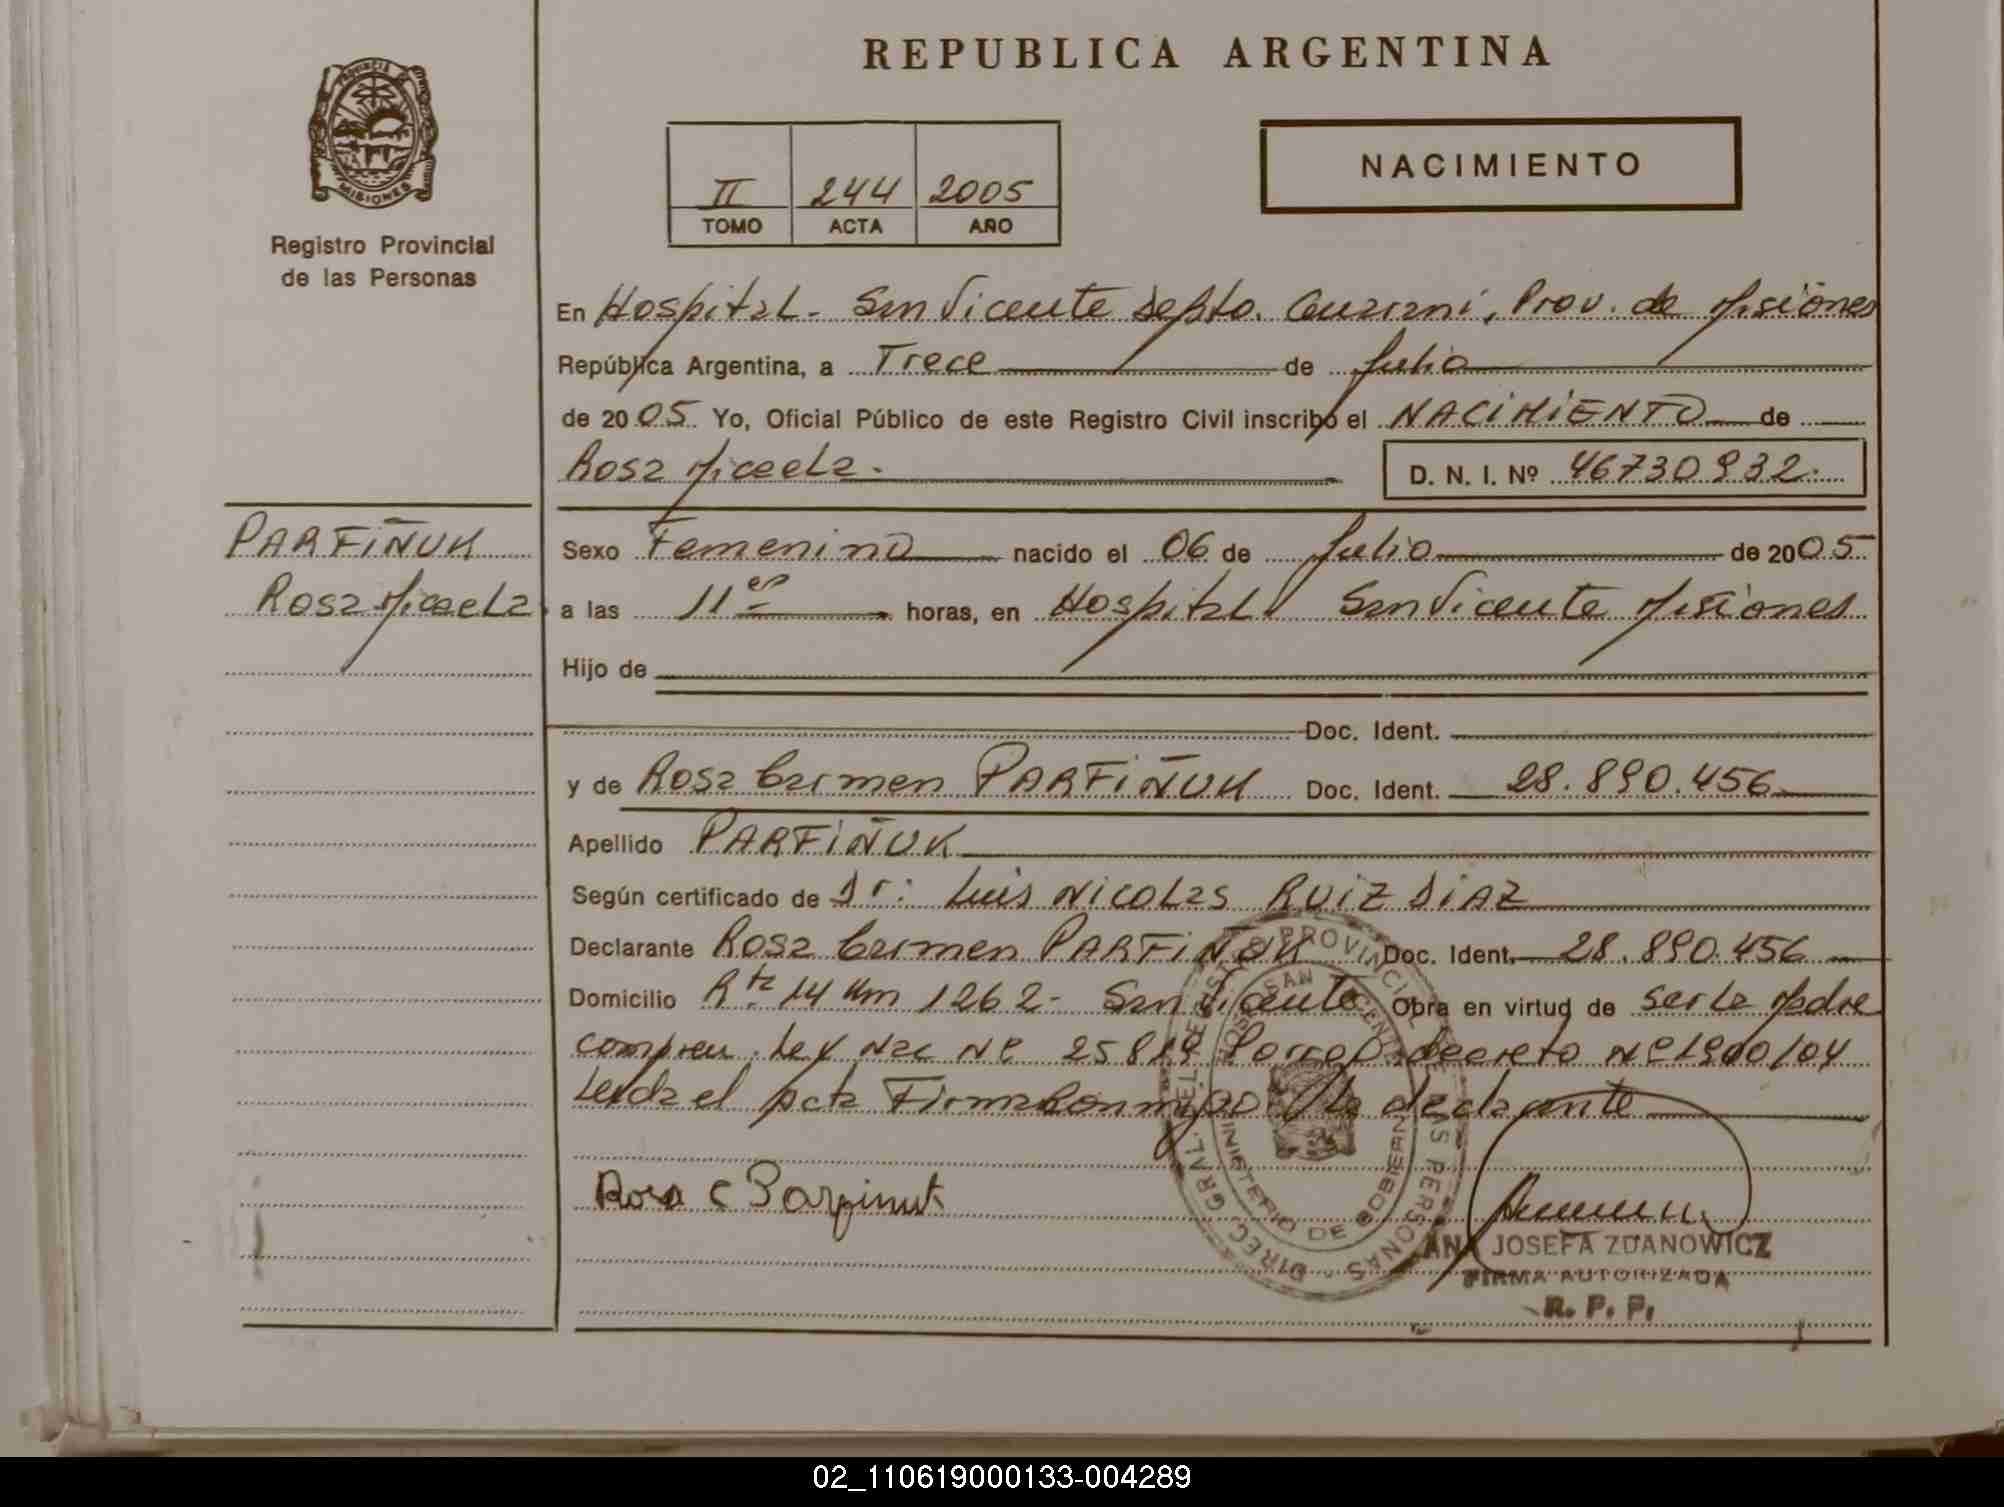 REPUBLICA ARGENTINA
PROVINCIA DE
MISIONES
Registro Provincial
de las Personas
II 244 2005
TOMO ACTA AÑO
NACIMIENTO
En Hospital - San Vicente Depto. Guarani, Prov. de Misiones
República Argentina, a Trece de Julio
de 2005 Yo, Oficial Público de este Registro Civil inscribo el NACIMIENTO de
Rosa Micaela. D. N. I. Nº 46730932.
PARFIÑUK
Rosa Micaela
Sexo Femenino nacido el 06 de Julio de 2005
a las 11 horas, en Hospital San Vicente Misiones
Hijo de
Doc. Ident.
y de Rosa Carmen PARFIÑUK Doc. Ident. 28.890.456
Apellido PARFIÑUK
Según certificado de Dr: Luis Nicolas RUIZ DIAZ
Declarante Rosa Carmen PARFIÑUK Doc. Ident. 28.890.456
Domicilio Rta 14 Km 1262 - San Vicente Obra en virtud de ser la Madre
Ley Nac Nº 25819 Decreto Nº 1900/04
Leida el acta Firma Conmigo la declarante
Rosa C Parfinuk
DIREC. GRAL. DEL REGISTRO PROVINCIAL DE LAS PERSONAS
HOSP. SAN VICENTE
MINISTERIO DE GOBIERNO
ANA JOSEFA ZDANOWICZ
FIRMA AUTORIZADA
R. P. P.
02_110619000133-004289